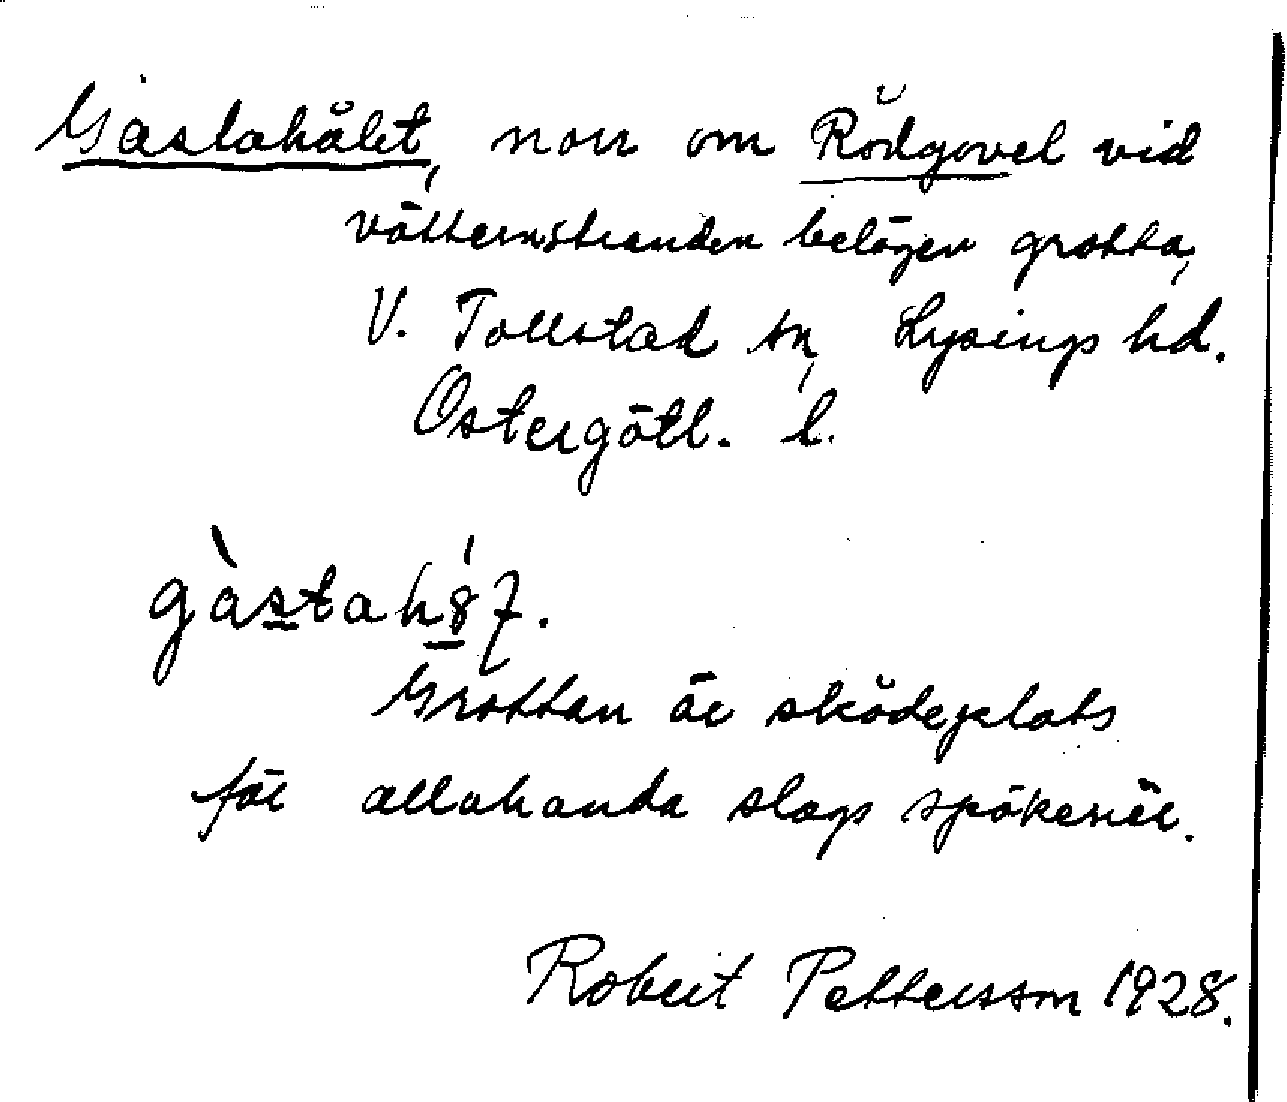 Gastahålet, norr om Rödgavel vid
vätternstranden belägen grotta,
V. Tollstad sn, Lysings hd.
Östergötl. l.
Grottan är skådeplats
för allahanda slags spökerier.
Robert Pettersson 1928.